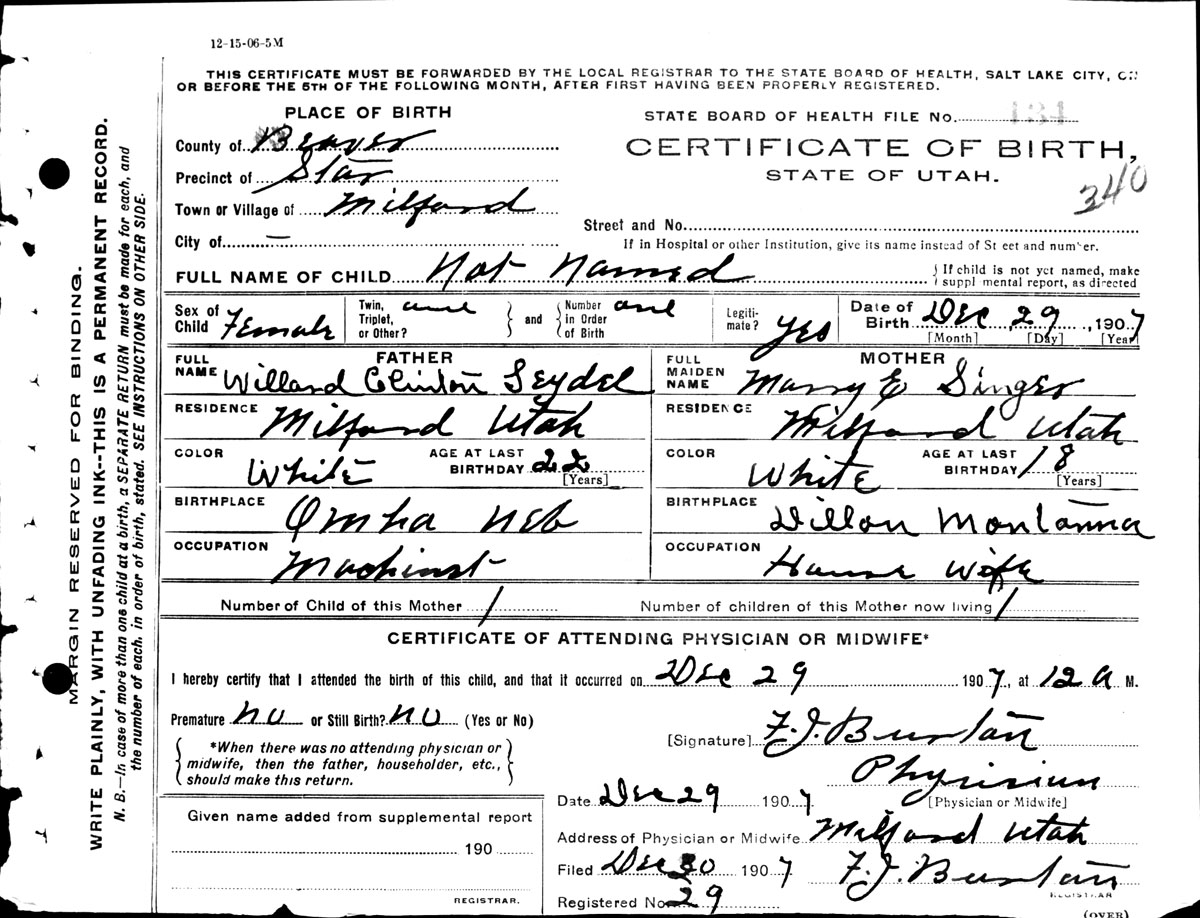 12-15-06-5M
THIS CERTIFICATE MUST BE FORWARDED BY THE LOCAL REGISTRAR TO THE STATE BOARD OF HEALTH, SALT LAKE CITY, ON
OR BEFORE THE 5TH OF THE FOLLOWING MONTH, AFTER FIRST HAVING BEEN PROPERLY REGISTERED.
PLACE OF BIRTH
STATE BOARD OF HEALTH FILE No. 134
County of Beaver
CERTIFICATE OF BIRTH,
Precinct of Star
STATE OF UTAH.
340
Town or Village of Milford
Street and No.
City of —
If in Hospital or other Institution, give its name instead of Street and number.
FULL NAME OF CHILD Not Named
} If child is not yet named, make
} supplemental report, as directed
Sex of Child Female
Twin, Triplet, or Other? and Number in Order of Birth
Legitimate? Yes
Date of Birth Dec 29, 1907
[Month] [Day] [Year]
FATHER
FULL NAME Willard Clinton Seydel
RESIDENCE Milford Utah
COLOR White AGE AT LAST BIRTHDAY 22
[Years]
BIRTHPLACE Omha Neb
OCCUPATION Machinst
MOTHER
FULL MAIDEN NAME Marry E Singer
RESIDENCE Milford Utah
COLOR White AGE AT LAST BIRTHDAY 18
[Years]
BIRTHPLACE Dillon Montanna
OCCUPATION House Wife
Number of Child of this Mother 1 Number of children of this Mother now living 1
CERTIFICATE OF ATTENDING PHYSICIAN OR MIDWIFE*
I hereby certify that I attended the birth of this child, and that it occurred on Dec 29 1907, at 12 A M.
Premature no or Still Birth? no (Yes or No)
[Signature] F. J. Burton
*When there was no attending physician or
midwife, then the father, householder, etc.,
should make this return.
Physician
[Physician or Midwife]
Date Dec 29 1907
Given name added from supplemental report
190
REGISTRAR.
Address of Physician or Midwife Milford Utah
Filed Dec 30 1907 F. J. Burton
REGISTRAR
Registered No. 29
(OVER)
MARGIN RESERVED FOR BINDING.
WRITE PLAINLY, WITH UNFADING INK--THIS IS A PERMANENT RECORD.
N. B.—In case of more than one child at a birth, a SEPARATE RETURN must be made for each, and
the number of each, in order of birth, stated. SEE INSTRUCTIONS ON OTHER SIDE.